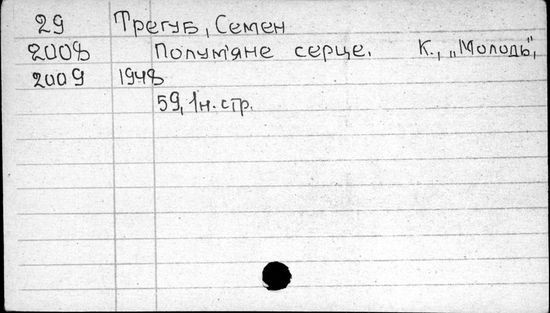 29 Трегуб, Семен
2008 Полум'яне серце. К., „Молодь",
2009 1948
59, 1н. стр.